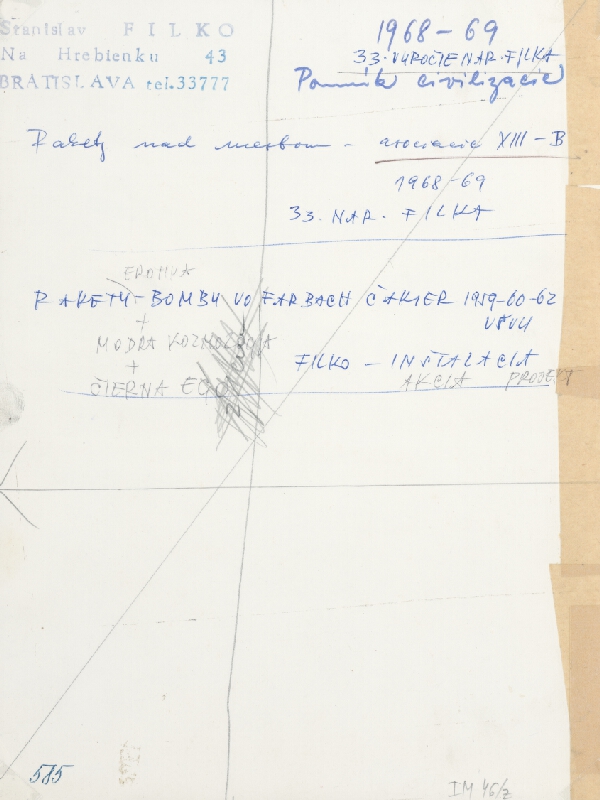 Stanislav FILKO
Na Hrebienku 43
BRATISLAVA tel.33777
1968-69
33. VÝROČIE NAR. FILKA
Pomník civilizácie
Rakety nad mestom - asociácie XIII-B
1968-69
33. NAR. FILKA
EROMUA
RAKETY-BOMBY VO FARBACH ČAKIER 1959-60-62
VŠVU
+
MODRA KOZMOLOGIA
+
ČIERNA EGO
FILKO - INŠTALACIA
AKCIA PROJEKT
585
IM 46/z